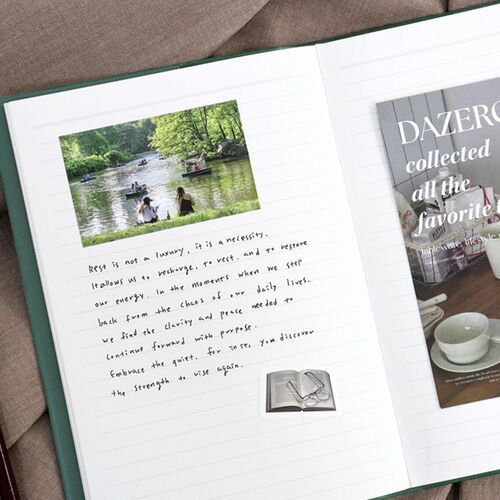 Rest is not a luxury, it is a necessity.
It allows us to recharge, to rest. and to restore
our energy. In the moments when we step
back from the chaos of our daily lives.
we find the clarity and peace needed to
continue forward with purpose.
Embrace the quiet. for in it, you discover
the strength to rise again.
DAZERO
collected
all the
favorite
tableware, lifestyle